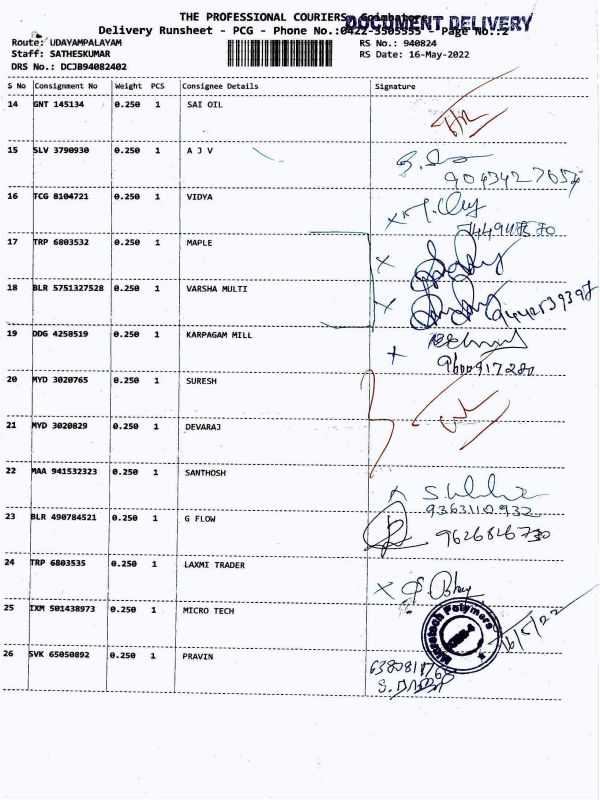 THE PROFESSIONAL COURIERS, Coimbatore
DOCUMENT DELIVERY
Delivery Runsheet - PCG - Phone No.:0422-3505555 - Page No.:2
Route: UDAYAMPALAYAM
Staff: SATHESKUMAR
DRS No.: DCJB94082402
RS No.: 940824
RS Date: 16-May-2022
S No Consignment No Weight PCS Consignee Details Signature
14 GNT 145134 0.250 1 SAI OIL
15 SLV 3790930 0.250 1 A J V
16 TCG 8104721 0.250 1 VIDYA
17 TRP 6803532 0.250 1 MAPLE
18 BLR 5751327528 0.250 1 VARSHA MULTI
19 DDG 4258519 0.250 1 KARPAGAM MILL
20 MYD 3020765 0.250 1 SURESH
21 MYD 3020829 0.250 1 DEVARAJ
22 MAA 941532323 0.250 1 SANTHOSH
9363110932
23 BLR 490784521 0.250 1 G FLOW
9626846730
24 TRP 6803535 0.250 1 LAXMI TRADER
25 IXM 501438973 0.250 1 MICRO TECH
16/5/22
26 SVK 65050892 0.250 1 PRAVIN